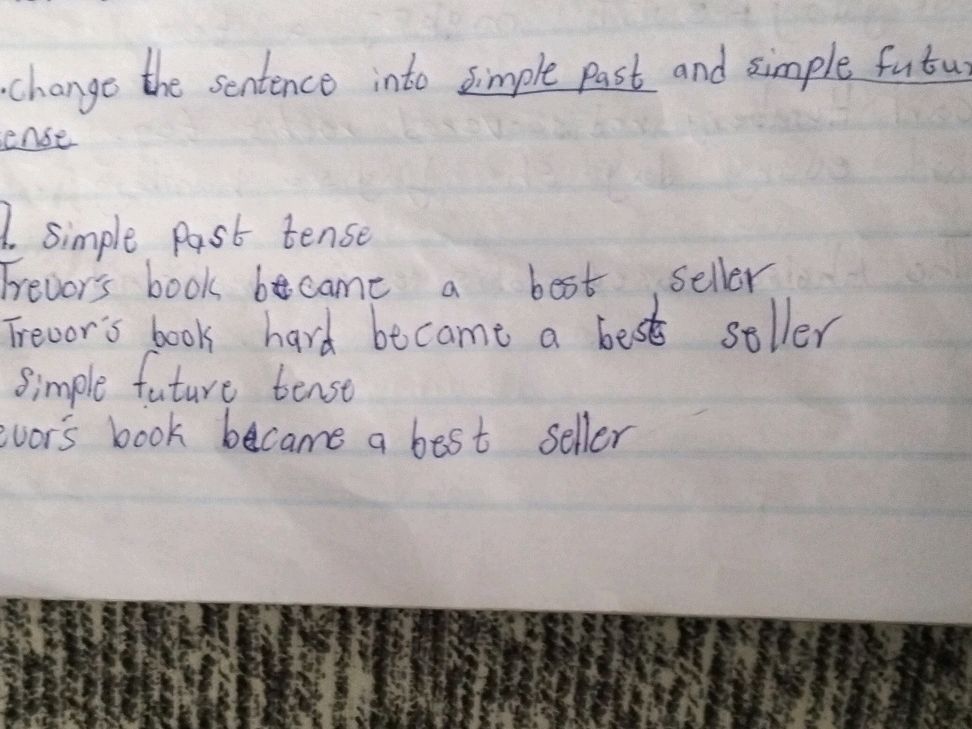 .change the sentence into simple past and simple futur
ense
1. simple past tense
Trevor's book became a best seller
Trevor's book hard became a best seller
simple future tense
evor's book became a best seller